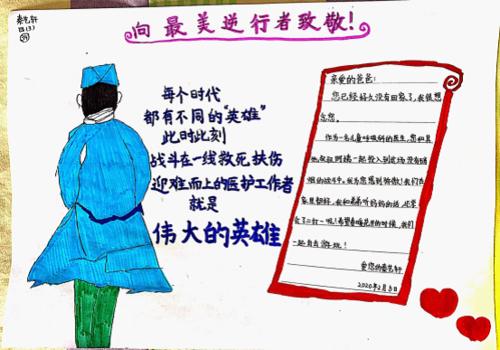 四(3)
向最美逆行者致敬!
每个时代
都有不同的“英雄”
此时此刻
战斗在一线救死扶伤
迎难而上的医护工作者
就是
伟大的英雄
亲爱的爸爸:
您已经好久没有回家了,我很想
念您。
作为一名儿童呼吸科的医生,您和其
他叔叔阿姨一起投入到这场没有硝
烟的战斗中,我为您感到骄傲!我们在
家里都好,我和弟弟听妈妈的话,还学
会了二打一呢!希望春暖花开的时候,我们
一起去游玩!
爱您的秦艺轩
2020年2月3日